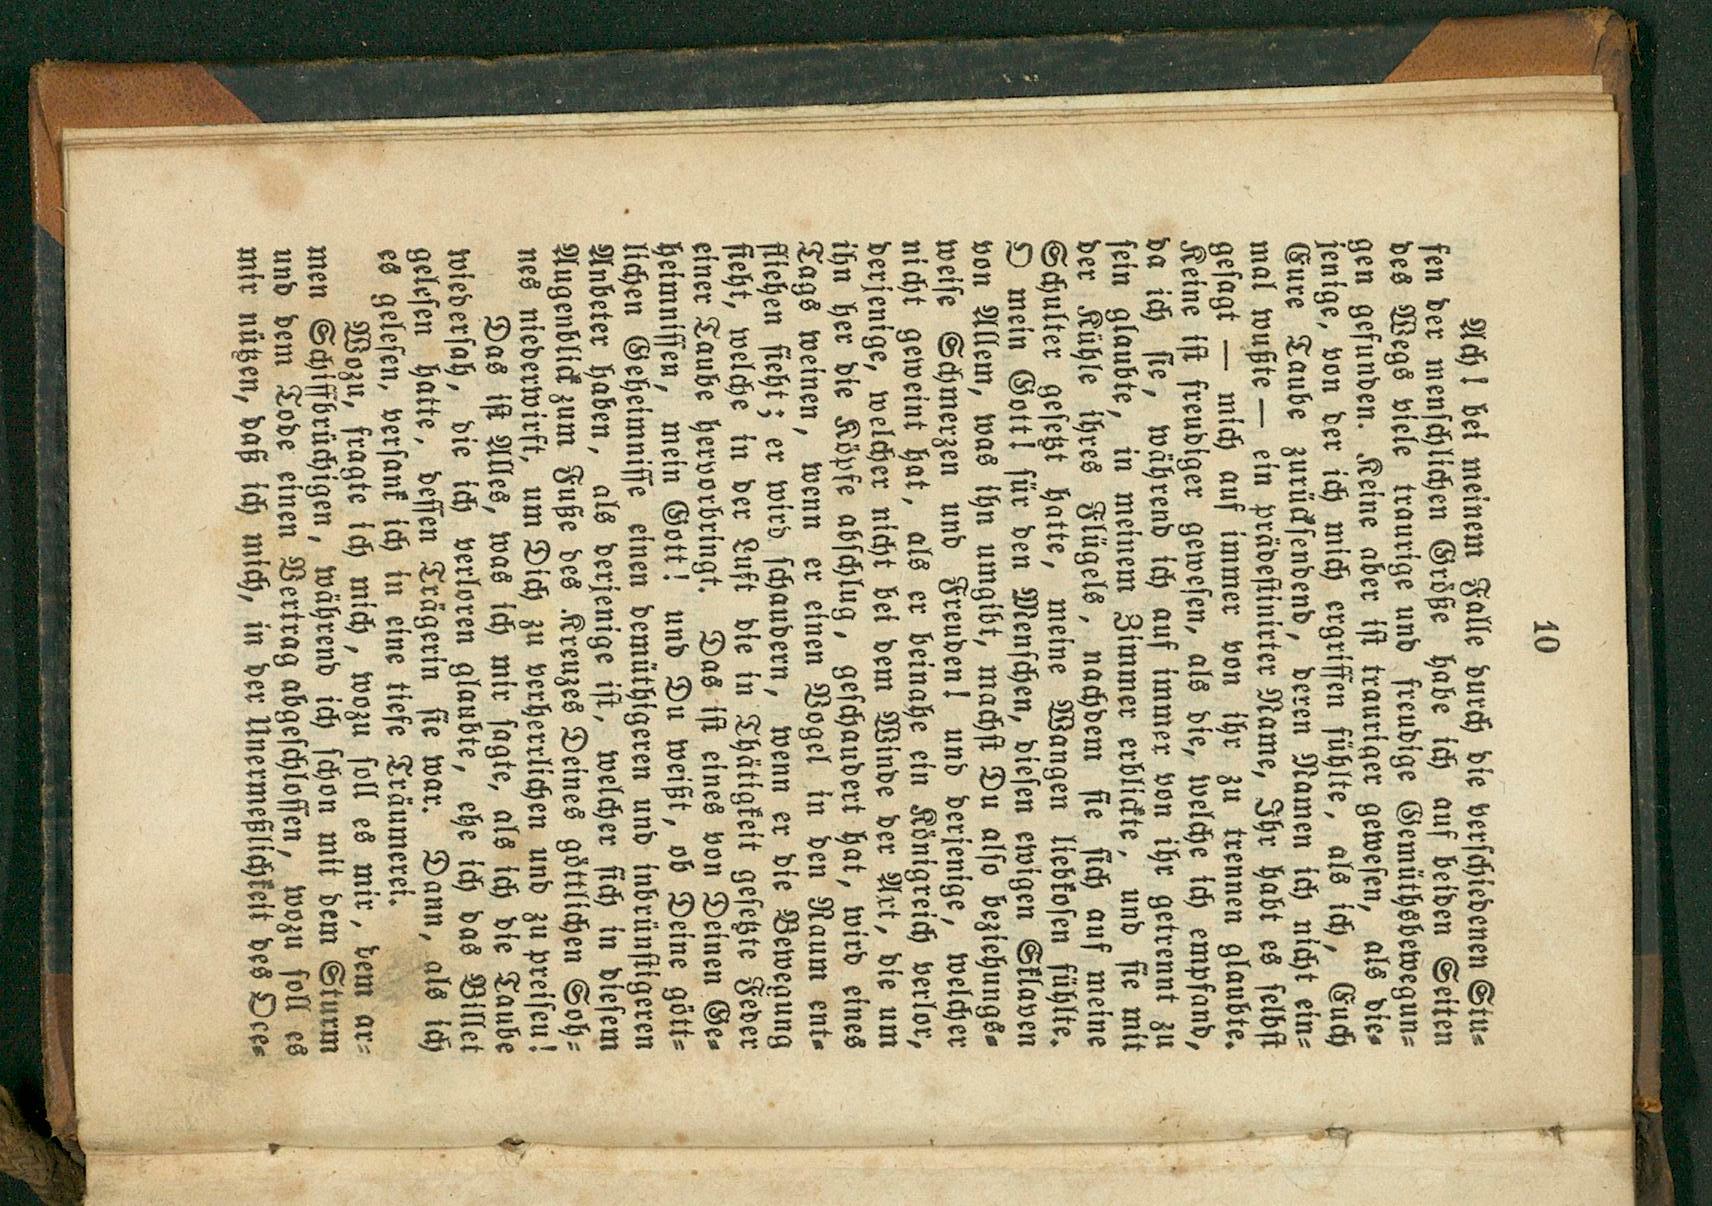 10
Ach! bei meinem Falle durch die verschiedenen Stu⸗
fen der menschlichen Größe habe ich auf beiden Seiten
des Wegs viele traurige und freudige Gemüthsbewegun⸗
gen gefunden. Keine aber ist trauriger gewesen, als die⸗
jenige, von der ich mich ergriffen fühlte, als ich, Euch
Eure Taube zurücksendend, deren Namen ich nicht ein⸗
mal wußte — ein prädestinirter Name, Ihr habt es selbst
gesagt — mich auf immer von ihr zu trennen glaubte.
Keine ist freudiger gewesen, als die, welche ich empfand,
da ich sie, während ich auf immer von ihr getrennt zu
sein glaubte, in meinem Zimmer erblickte, und sie mit
der Kühle ihres Flügels, nachdem sie sich auf meine
Schulter gesetzt hatte, meine Wangen liebkosen fühlte.
O mein Gott! für den Menschen, diesen ewigen Sklaven
von Allem, was ihn umgibt, machst Du also beziehungs⸗
weise Schmerzen und Freuden! und derjenige, welcher
nicht geweint hat, als er beinahe ein Königreich verlor,
derjenige, welcher nicht bei dem Winde der Art, die um
ihn her die Köpfe abschlug, geschaudert hat, wird eines
Tags weinen, wenn er einen Vogel in den Raum ent⸗
fliehen sieht; er wird schaudern, wenn er die Bewegung
sieht, welche in der Luft die in Thätigkeit gesetzte Feder
einer Taube hervorbringt. Das ist eines von Deinen Ge⸗
heimnissen, mein Gott! und Du weißt, ob Deine gött⸗
lichen Geheimnisse einen demüthigeren und inbrünstigeren
Anbeter haben, als derjenige ist, welcher sich in diesem
Augenblick zum Fuße des Kreuzes Deines göttlichen Soh⸗
nes niederwirft, um Dich zu verherrlichen und zu preisen!
Das ist Alles, was ich mir sagte, als ich die Taube
wiedersah, die ich verloren glaubte, ehe ich das Billet
gelesen hatte, dessen Trägerin sie war. Dann, als ich
es gelesen, versank ich in eine tiefe Träumerei.
Wozu, fragte ich mich, wozu soll es mir, dem ar⸗
men Schiffbrüchigen, während ich schon mit dem Sturm
und dem Tode einen Vertrag abgeschlossen, wozu soll es
mir nützen, daß ich mich, in der Unermeßlichkeit des Oce⸗